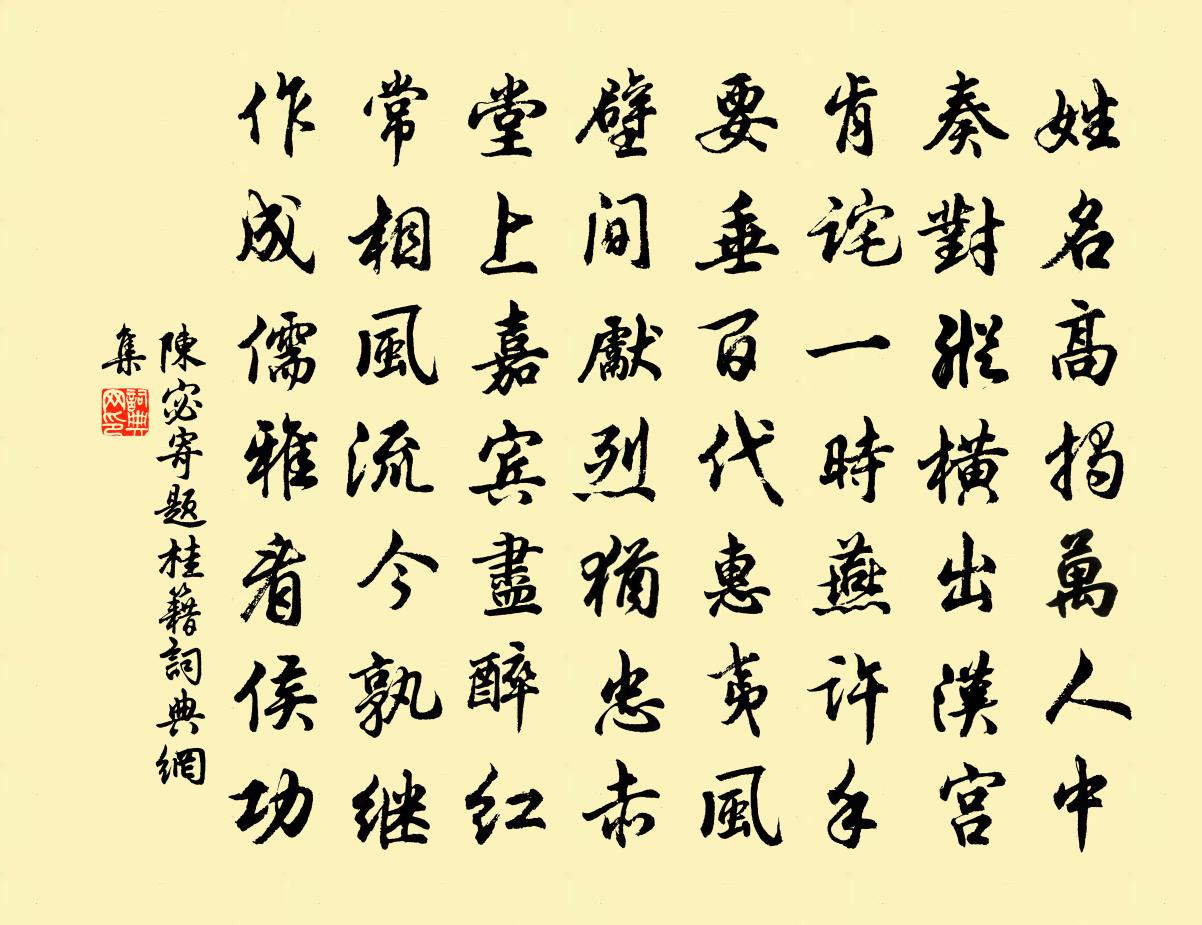 姓名高揭萬人中
奏對縱橫出漢宮
肯詫一時燕許手
要垂百代惠夷風
壁間獻烈猶忠赤
堂上嘉賓盡醉紅
常相風流今孰继
作成儒雅看侯功
陳宓寄题桂籍詞典網
集
詞典
网印